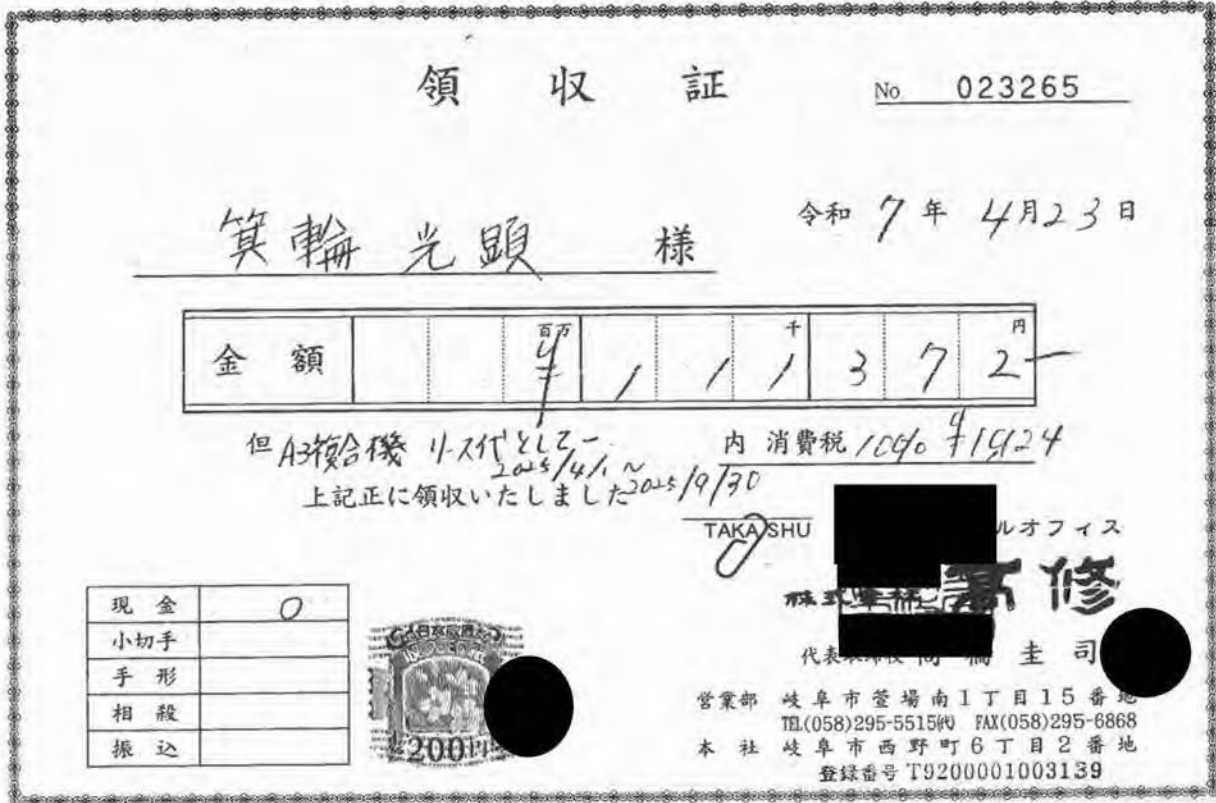 領収証
No. 023265
令和 7年 4月23日
箕輪 光顕 様
金額 百万 千 円
¥111372-
但 A3複合機 リース代として-
2025/4/1~
2025/9/30
内 消費税10%
上記正に領収いたしました
TAKA SHU ルオフィス
株式会社 高修
代表取締役 高橋圭司
営業部 岐阜市萱場南1丁目15番地
TEL(058)295-5515(代) FAX(058)295-6868
本社 岐阜市西野町6丁目2番地
登録番号 T9200001003139
現金 ○
小切手
手形
相殺
振込
200円